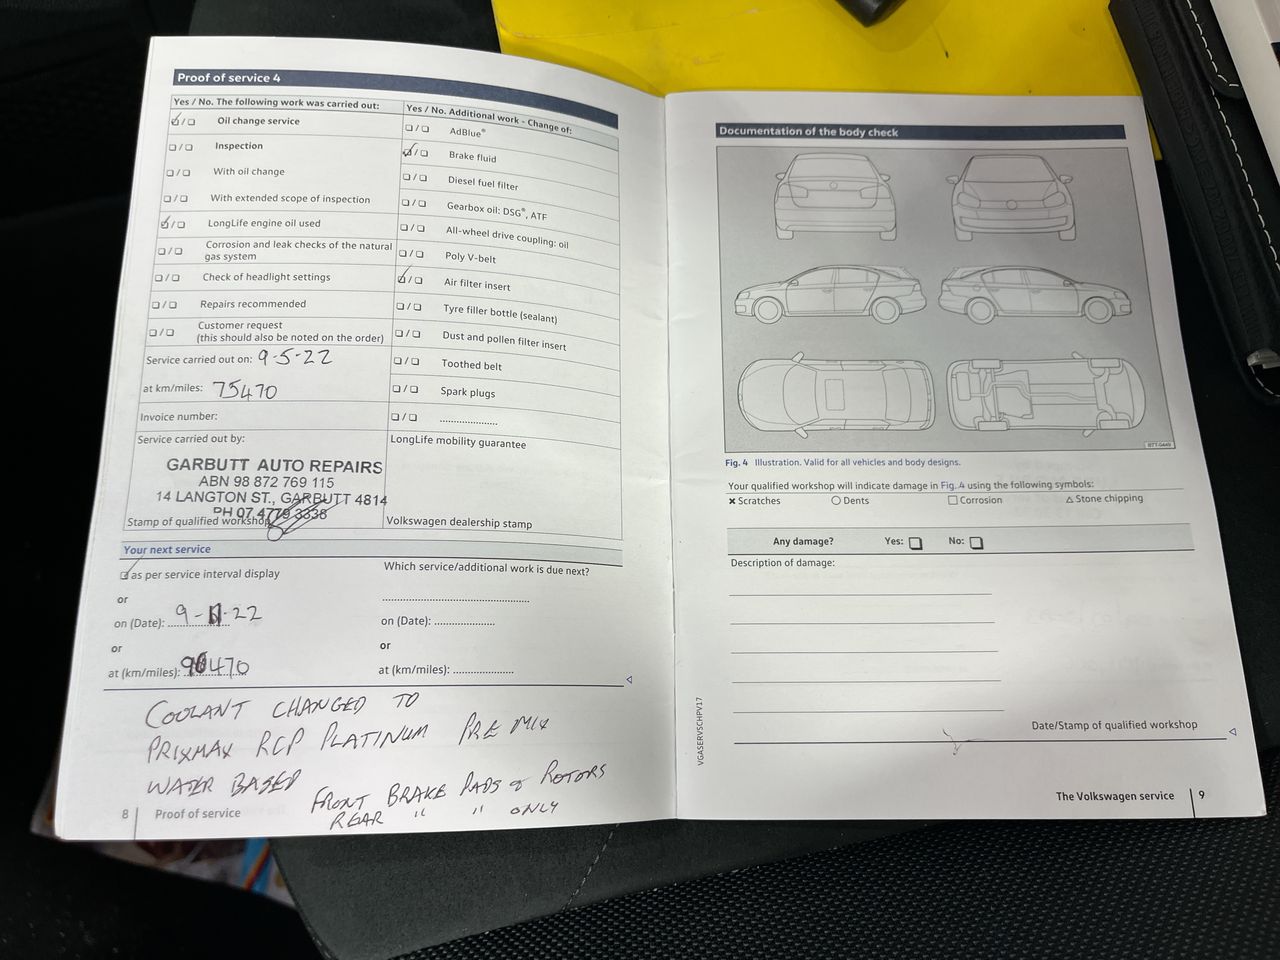 Proof of service 4
Yes / No. The following work was carried out:
☑/☐ Oil change service
☐/☐ Inspection
☐/☐ With oil change
☐/☐ With extended scope of inspection
☑/☐ LongLife engine oil used
☐/☐ Corrosion and leak checks of the natural
gas system
☐/☐ Check of headlight settings
☐/☐ Repairs recommended
☐/☐ Customer request
(this should also be noted on the order)
Service carried out on: 9-5-22
at km/miles: 75470
Invoice number:
Service carried out by:
GARBUTT AUTO REPAIRS
ABN 98 872 769 115
14 LANGTON ST., GARBUTT 4814
PH 07 4779 3338
Stamp of qualified workshop
Yes / No. Additional work - Change of:
☐/☐ AdBlue®
☑/☐ Brake fluid
☐/☐ Diesel fuel filter
☐/☐ Gearbox oil: DSG®, ATF
☐/☐ All-wheel drive coupling: oil
☐/☐ Poly V-belt
☑/☐ Air filter insert
☐/☐ Tyre filler bottle (sealant)
☐/☐ Dust and pollen filter insert
☐/☐ Toothed belt
☐/☐ Spark plugs
☐/☐ ....................
LongLife mobility guarantee
Volkswagen dealership stamp
Your next service
☑ as per service interval display
or
on (Date): 9-11-22
or
at (km/miles): 90470
Which service/additional work is due next?
on (Date): ....................
or
at (km/miles): ....................
COOLANT CHANGED TO
PRIXMAX RCP PLATINUM PRE MIX
WATER BASED
FRONT BRAKE PADS & ROTORS
REAR " " ONLY
8 Proof of service
Documentation of the body check
BTT-0449
Fig. 4 Illustration. Valid for all vehicles and body designs.
Your qualified workshop will indicate damage in Fig. 4 using the following symbols:
✖ Scratches ○ Dents ☐ Corrosion △ Stone chipping
Any damage? Yes: ☐ No: ☐
Description of damage:
Date/Stamp of qualified workshop
VGASERVSCHPV17
The Volkswagen service 9